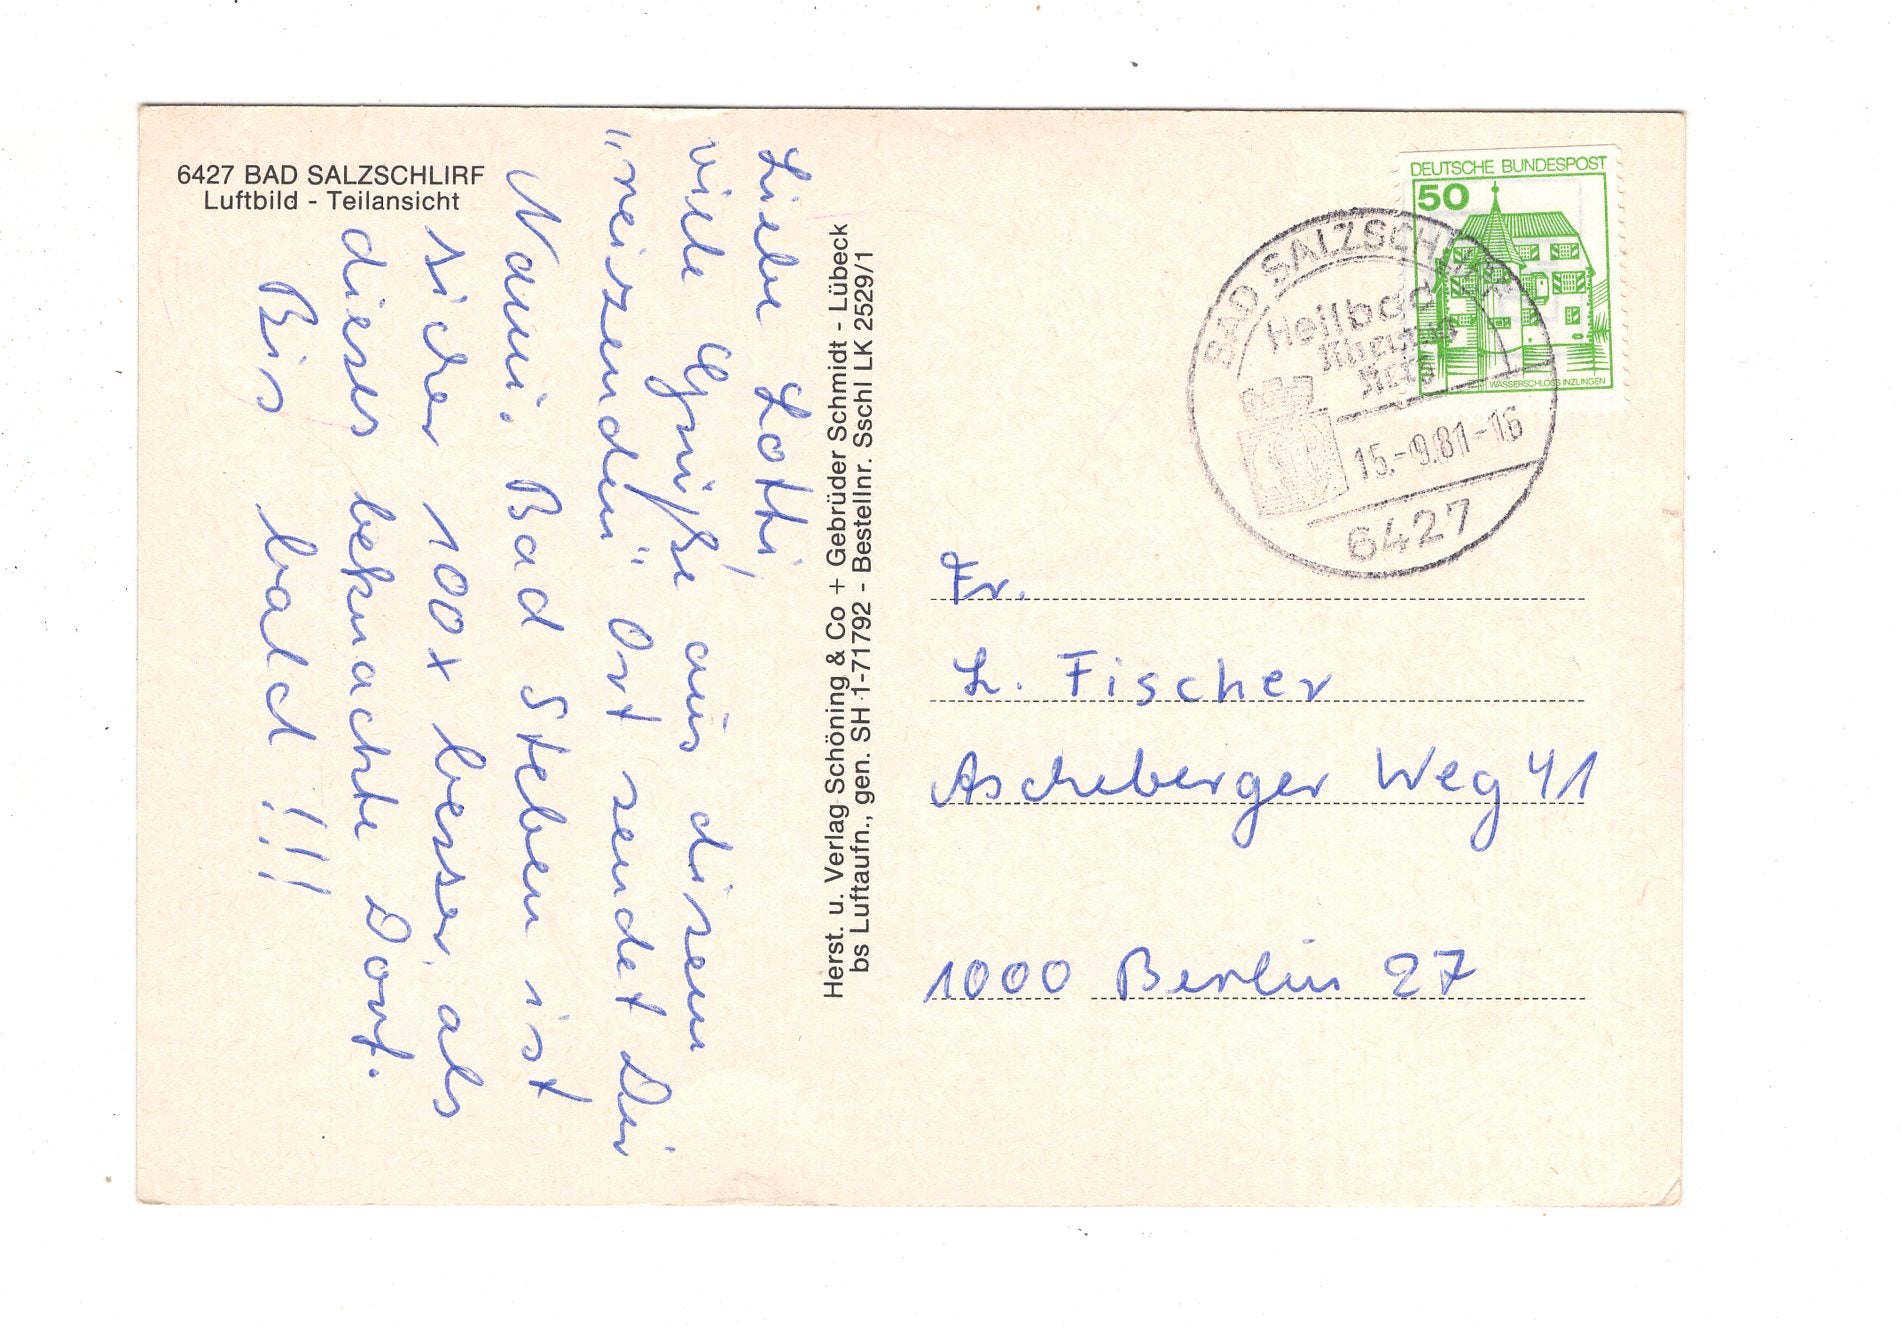 6427 BAD SALZSCHLIRF
Luftbild - Teilansicht
Liebe Lotti,
viele Grüße aus diesem
„reizenden" Ort sendet Dir
Nanni. Bad Steben ist
sicher 100x besser, als
dieses beknackte Dorf.
Bis bald!!!
Herst. u. Verlag Schöning & Co + Gebrüder Schmidt - Lübeck
bs Luftaufn., gen. SH 1-71792 - Bestellnr. Sschl LK 2529/1
DEUTSCHE BUNDESPOST
50
WASSERSCHLOSS INZLINGEN
BAD SALZSCHLIRF
Heilbad
Rheuma
15.-9.81-16
6427
Fr.
L. Fischer
Ascheberger Weg 41
1000 Berlin 27